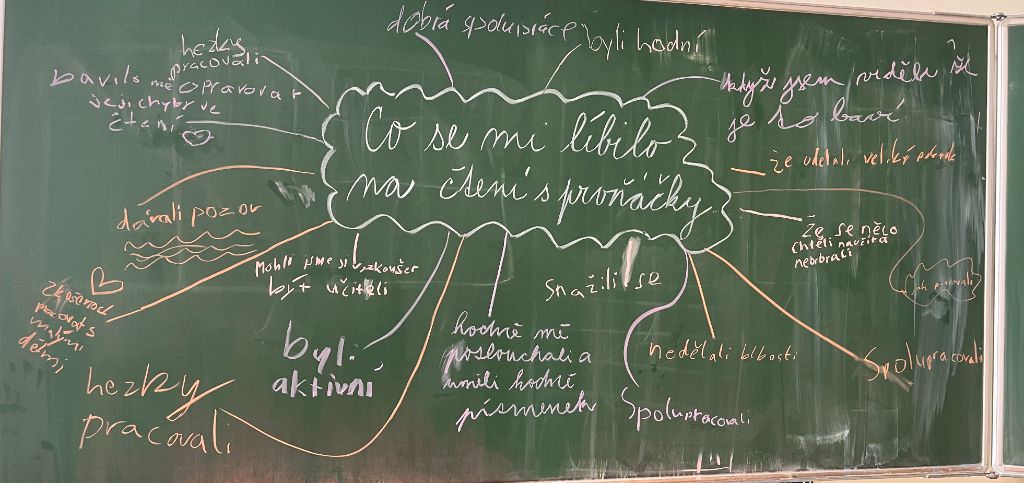 dobrá spolupráce
byli hodní
hezky
pracovali
bavilo mě opravovat
jejich chyby ve
čtení
když jsem viděla že
je to baví
Co se mi líbilo
na čtení s prvňáčky
že udělali veliký
dávali pozor
Že se něco
chtěli naučit a
nebrbrali
Mohli jsme si vyzkoušet
být učiteli
snažili se
jak pracovali
pracovat s
malými
dětmi
byli
aktivní
hodně mě
poslouchali a
uměli hodně
písmenek
nedělali blbosti
Spolupracovali
hezky
pracovali
Spolupracovali